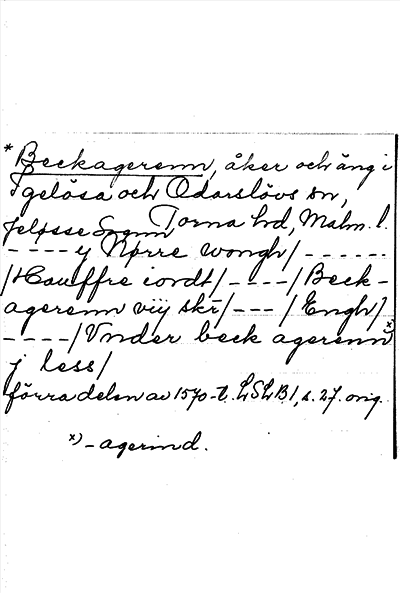 * Beckagerenn, åker och äng i
Igelösa och Odarslövs sn,
Jelosse Sognn, Torna hd, Malm. l.
- - - - y Nørre wongh/ - - - - - -
/Hauffre iordt/ - - - - /Beck-
agerenn viij skr/ - - - /Engh/
- - - - /Vnder beck agerenn x)
j less/
förra delen av 1570-t. LSLB1, s. 27. orig.
x) - agerind.